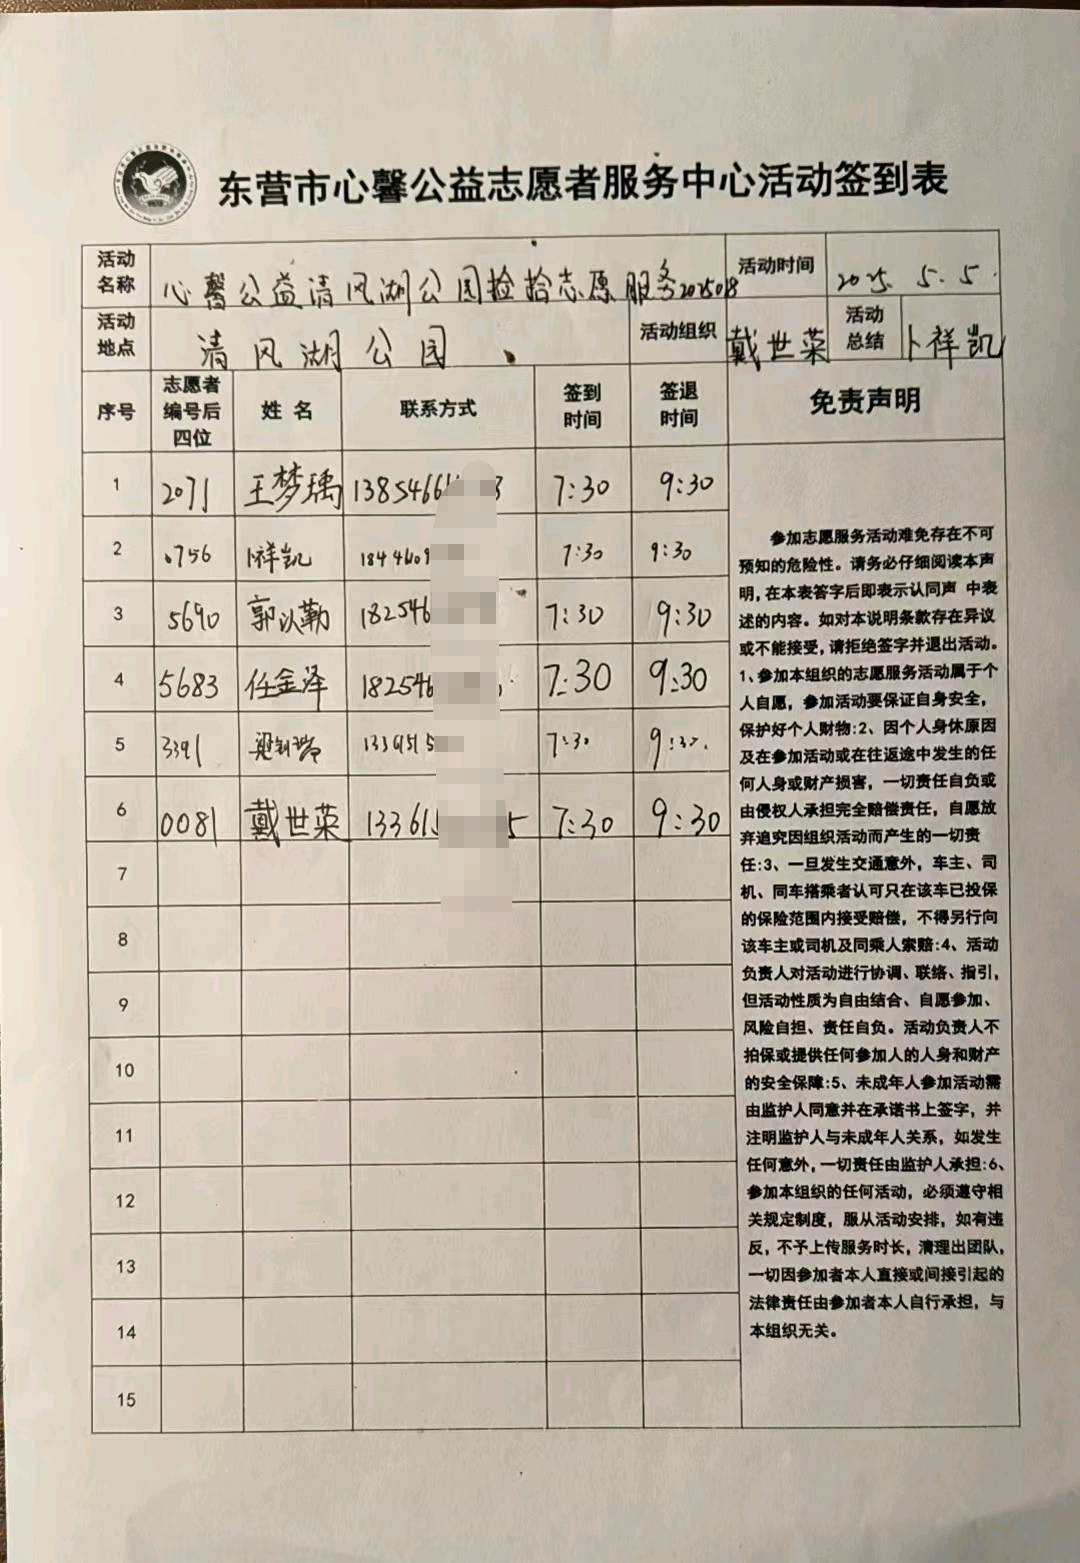 东营市心馨公益志愿者服务中心活动签到表
活动名称 心馨公益清风湖公园捡拾志愿服务2025018 活动时间 2025.5.5.
活动地点 清风湖公园 活动组织 戴世荣 活动总结 卜祥凯
序号 志愿者编号后四位 姓名 联系方式 签到时间 签退时间 免责声明
1 2071 王梦瑀 13854666 3 7:30 9:30
2 0756 卜祥凯 1844609 7:30 9:30
3 5690 郭以勤 182546 7:30 9:30
4 5683 任金泽 182546 7:30 9:30
5 3391 7:30 9:30.
6 0081 戴世荣 133615 5 7:30 9:30
7
8
9
10
11
12
13
14
15
参加志愿服务活动难免存在不可
预知的危险性。请务必仔细阅读本声
明,在本表答字后即表示认同声 中表
述的内容。如对本说明条款存在异议
或不能接受,请拒绝签字并退出活动。
1、参加本组织的志愿服务活动属于个
人自愿，参加活动要保证自身安全，
保护好个人财物:2、因个人身休原因
及在参加活动或在往返途中发生的任
何人身或财产损害，一切责任自负或
由侵权人承担完全赔偿责任，自愿放
弃追究因组织活动而产生的一切责
任:3、一旦发生交通意外，车主、司
机、同车搭乘者认可只在该车已投保
的保险范围内接受赔偿，不得另行向
该车主或司机及同乘人索赔:4、活动
负责人对活动进行协调、联络、指引，
但活动性质为自由结合、自愿参加、
风险自担、责任自负。活动负责人不
拍保或提供任何参加人的人身和财产
的安全保障:5、未成年人参加活动需
由监护人同意并在承诺书上签字，并
注明监护人与未成年人关系，如发生
任何意外,一切责任由监护人承担:6、
参加本组织的任何活动，必须遵守相
关规定制度，服从活动安排，如有违
反，不予上传服务时长，清理出团队，
一切因参加者本人直接或间接引起的
法律责任由参加者本人自行承担，与
本组织无关。